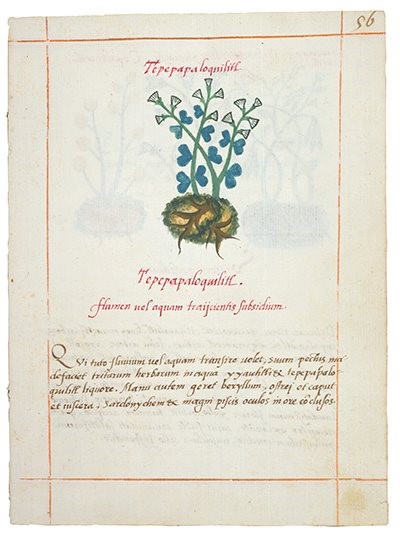 56
Tepepapaloquilitl
Tepepapaloquilitl.
flumen uel aquam traijcientis subsidium.
QVi tuto fluuium uel aquam transire uolet, suum pectus ma
defaciet tritarum herbarum in aqua yyauhtli & tepepapalo-
quilitl liquore. Manu autem geret beryllum, ostrei et caput
et uiscera, Sardonychem & magni piscis oculos in ore cõclusos.